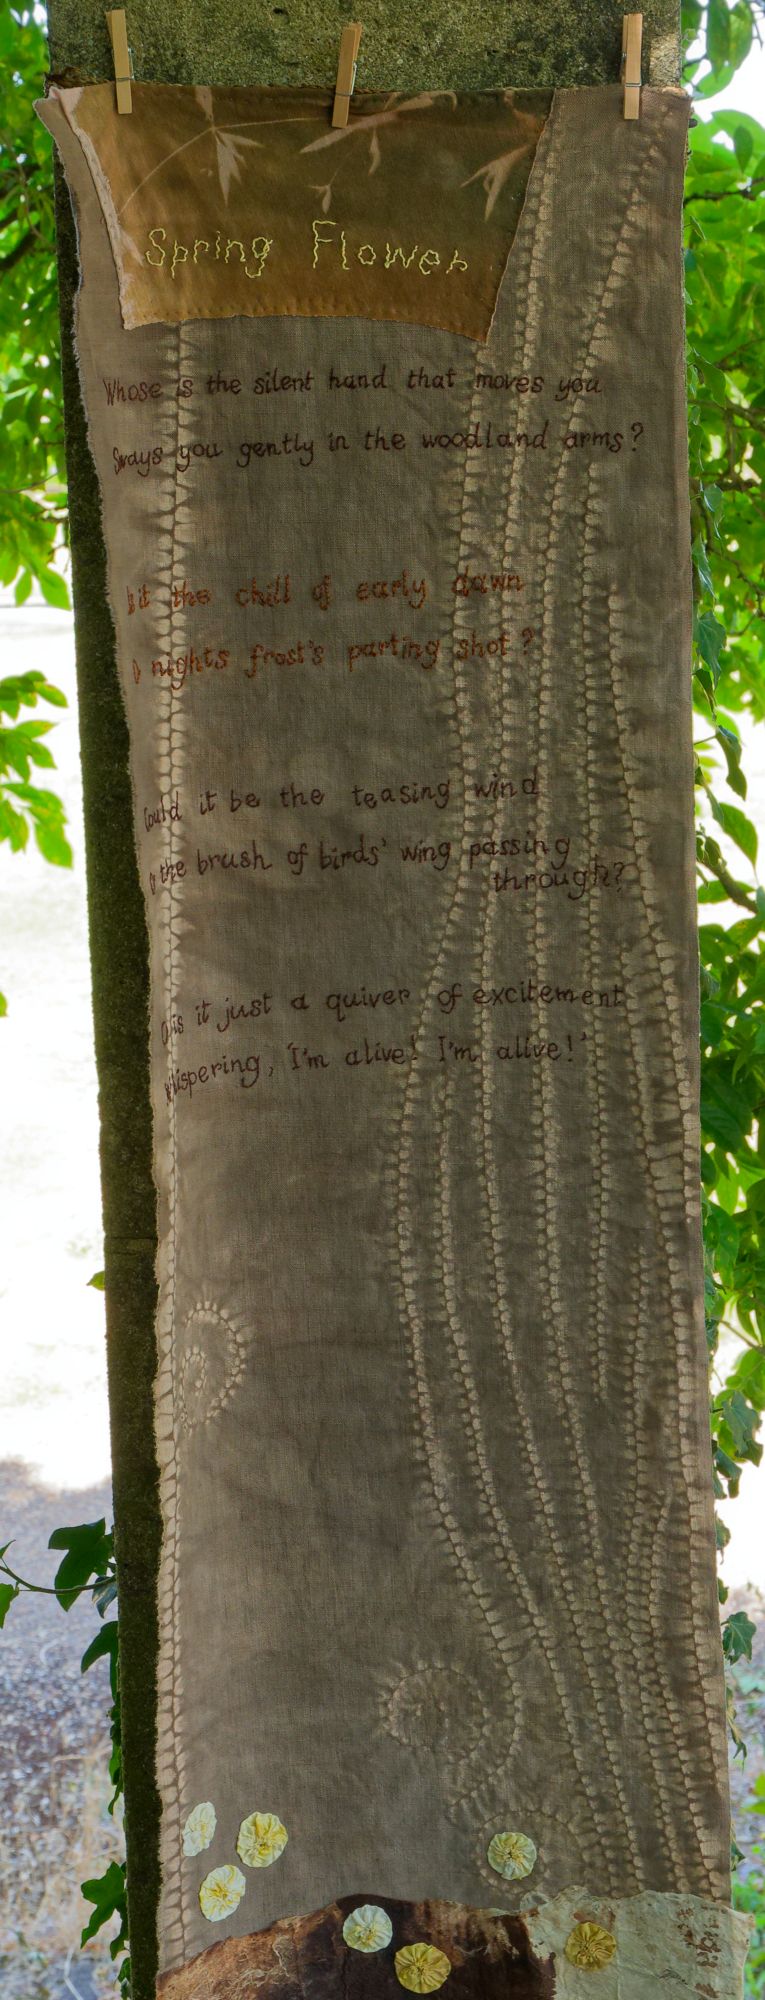 Spring Flower
Whose is the silent hand that moves you
Sways you gently in the woodland arms?
it the chill of early dawn
nights frost's parting shot?
Could it be the teasing wind
the brush of birds' wing passing
through?
is it just a quiver of excitement
whispering, 'I'm alive! I'm alive!'